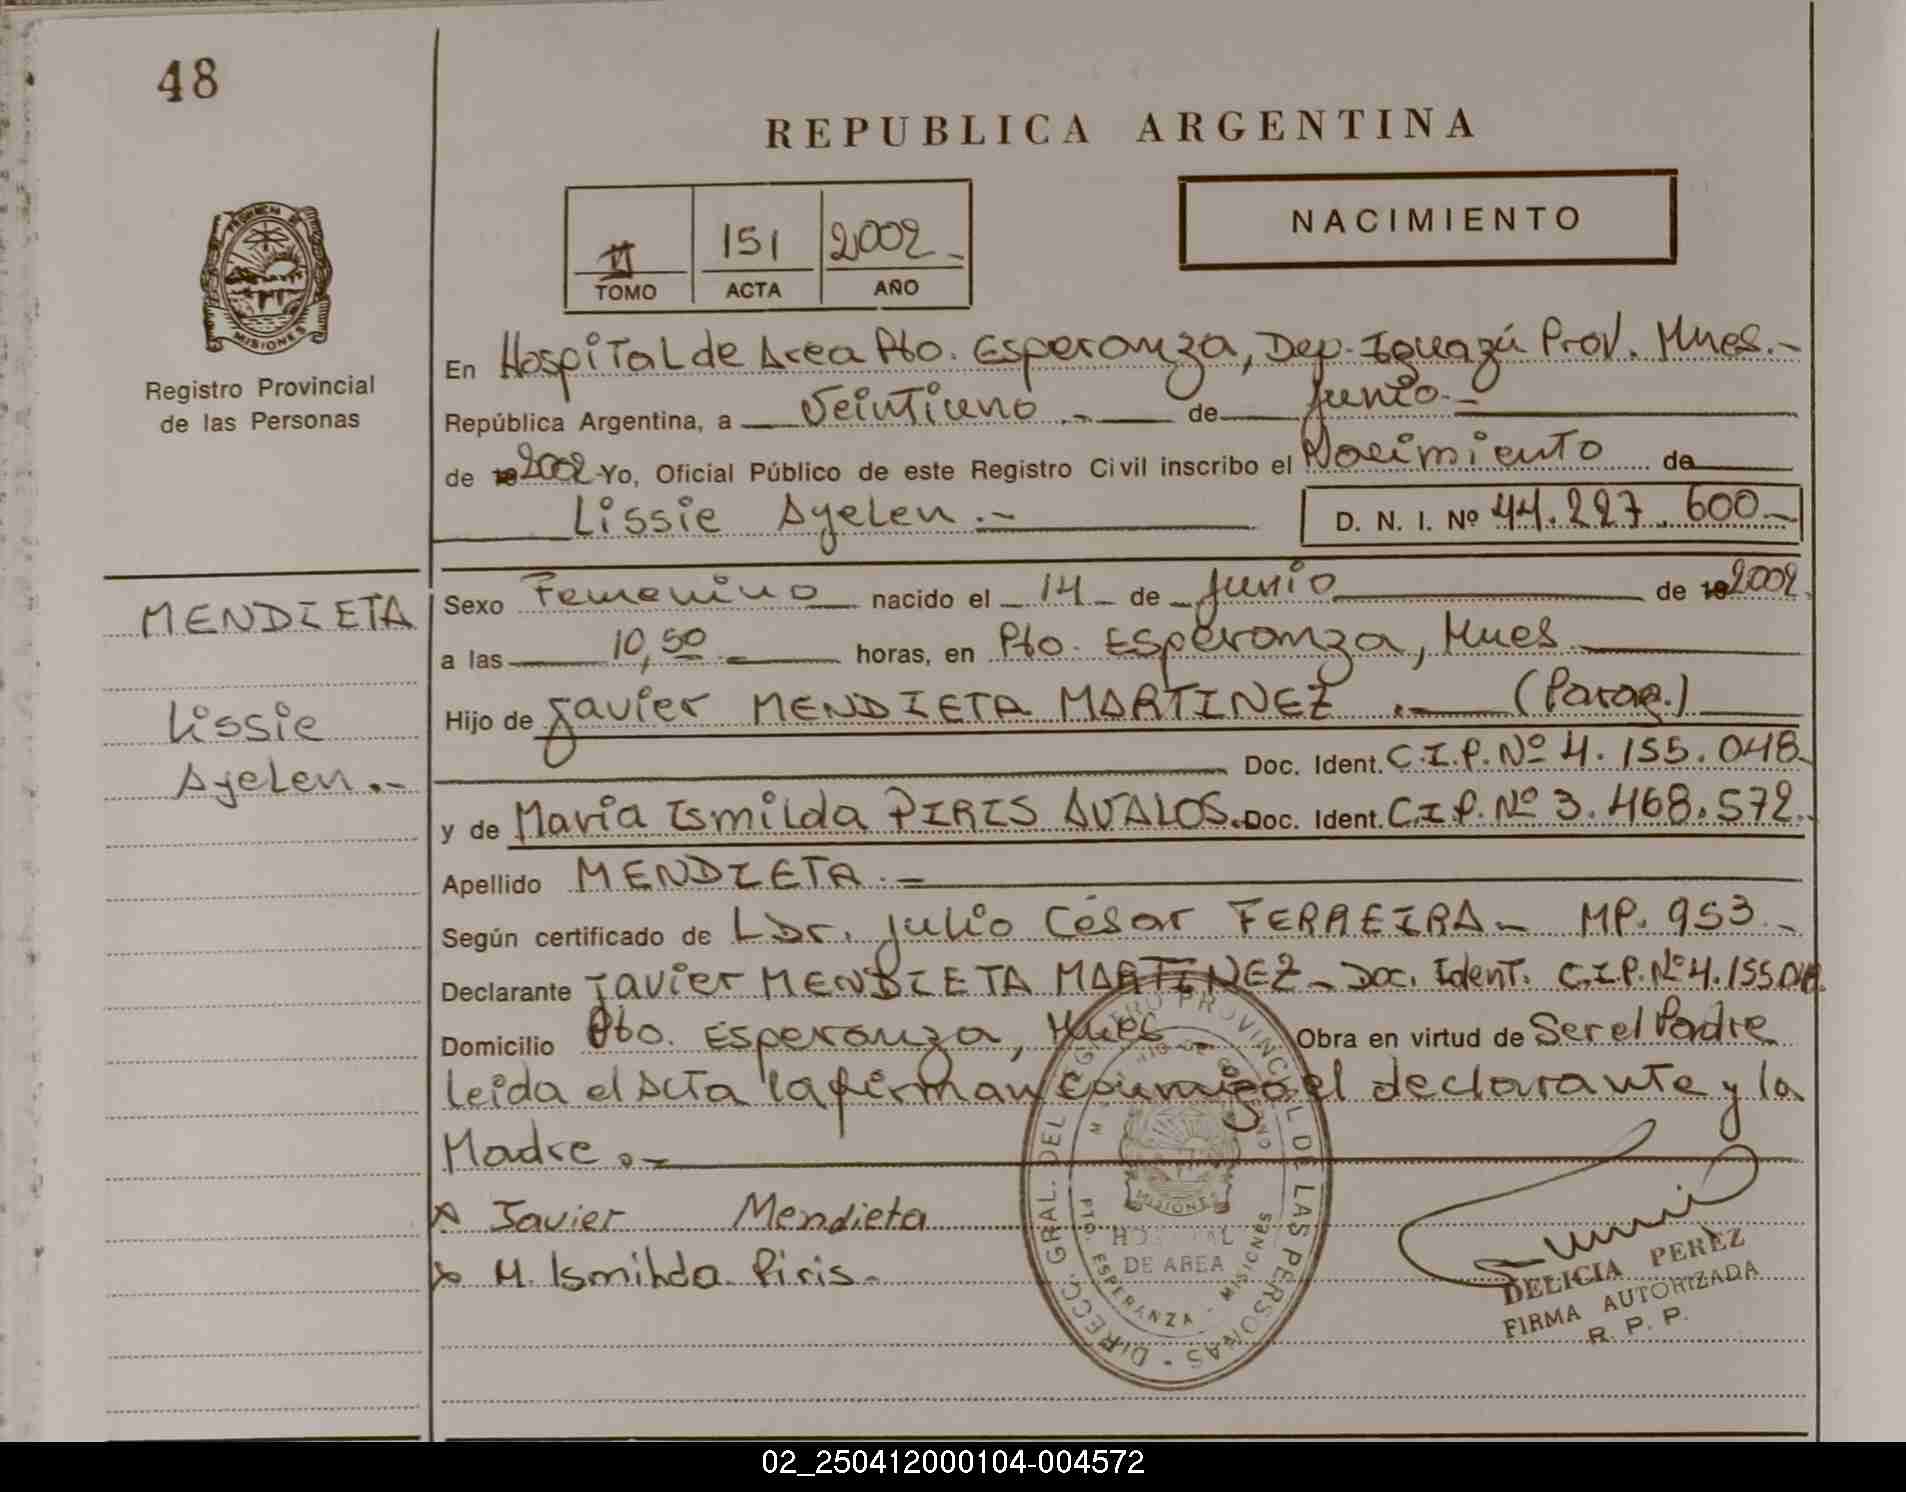 48
REPUBLICA ARGENTINA
NACIMIENTO
II 151 2002
TOMO ACTA AÑO
PROVINCIA DE
MISIONES
Registro Provincial
de las Personas
En Hospital de Area Pto. Esperanza, Dep. Iguazú Prov. Mnes.-
República Argentina, a Veintiuno .- de Junio.-
de 19 2002 Yo, Oficial Público de este Registro Civil inscribo el Nacimiento de
Lissie Ayelen .- D. N. I. Nº 44.227.600-
MENDIETA
Lissie
Ayelen.-
Sexo Femenino nacido el 14 de Junio de 19 2002.
a las 10,50 horas, en Pto. Esperanza, Mnes
Hijo de Javier MENDIETA MARTINEZ .- (Parag.)
Doc. Ident. C.I.P. Nº 4.155.048-
y de Maria Ismilda PIRIS AVALOS. Doc. Ident. C.I.P. Nº 3.468.572.
Apellido MENDIETA.-
Según certificado de Dr. Julio César FERREIRA - MP. 953.-
Declarante Javier MENDIETA MARTINEZ - Doc. Ident. C.I.P. Nº 4.155.048
Domicilio Pto. Esperanza, Mnes - Obra en virtud de Ser el Padre
Leida el Acta la firman conmigo el declarante y la
Madre .-
x Javier Mendieta
x M. Ismilda Piris.
DIRECC. GRAL. DEL REGISTRO PROVINCIAL DE LAS PERSONAS
MISIONES
HOSPITAL
DE AREA
PTO. ESPERANZA - MISIONES
DELICIA PEREZ
FIRMA AUTORIZADA
R. P. P.
02_250412000104-004572